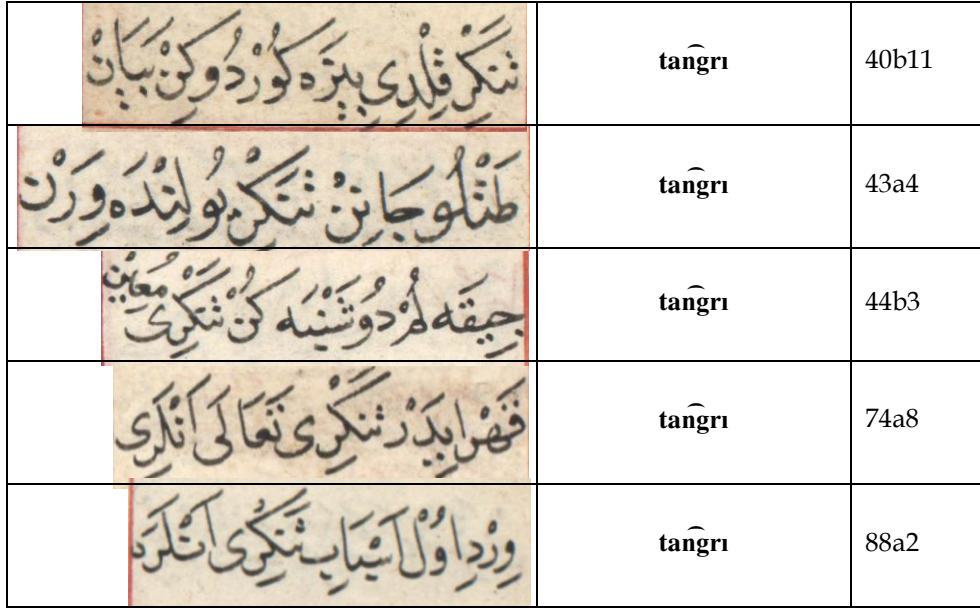 تَنَكْرِ قِلْدِي بِيزَه كُورْدُوكِنْ بَيَانْ tan͡grı 40b11
طَتْلُو جَانِنْ تَنَكْرِ يُولِنْدَه وِرَنْ tan͡grı 43a4
چِيقَه لَرْ دُوشَنْبَه كُنْ تَنَكْرِى مُعِينْ tan͡grı 44b3
قَهْرايِدَرْ تَنَكْرِى تَعَالَى اَنْلَرِى tan͡grı 74a8
وِرْدِ اُولْ اَسْبَابِ تَنَكْرِى اَنْلَرَه tan͡grı 88a2